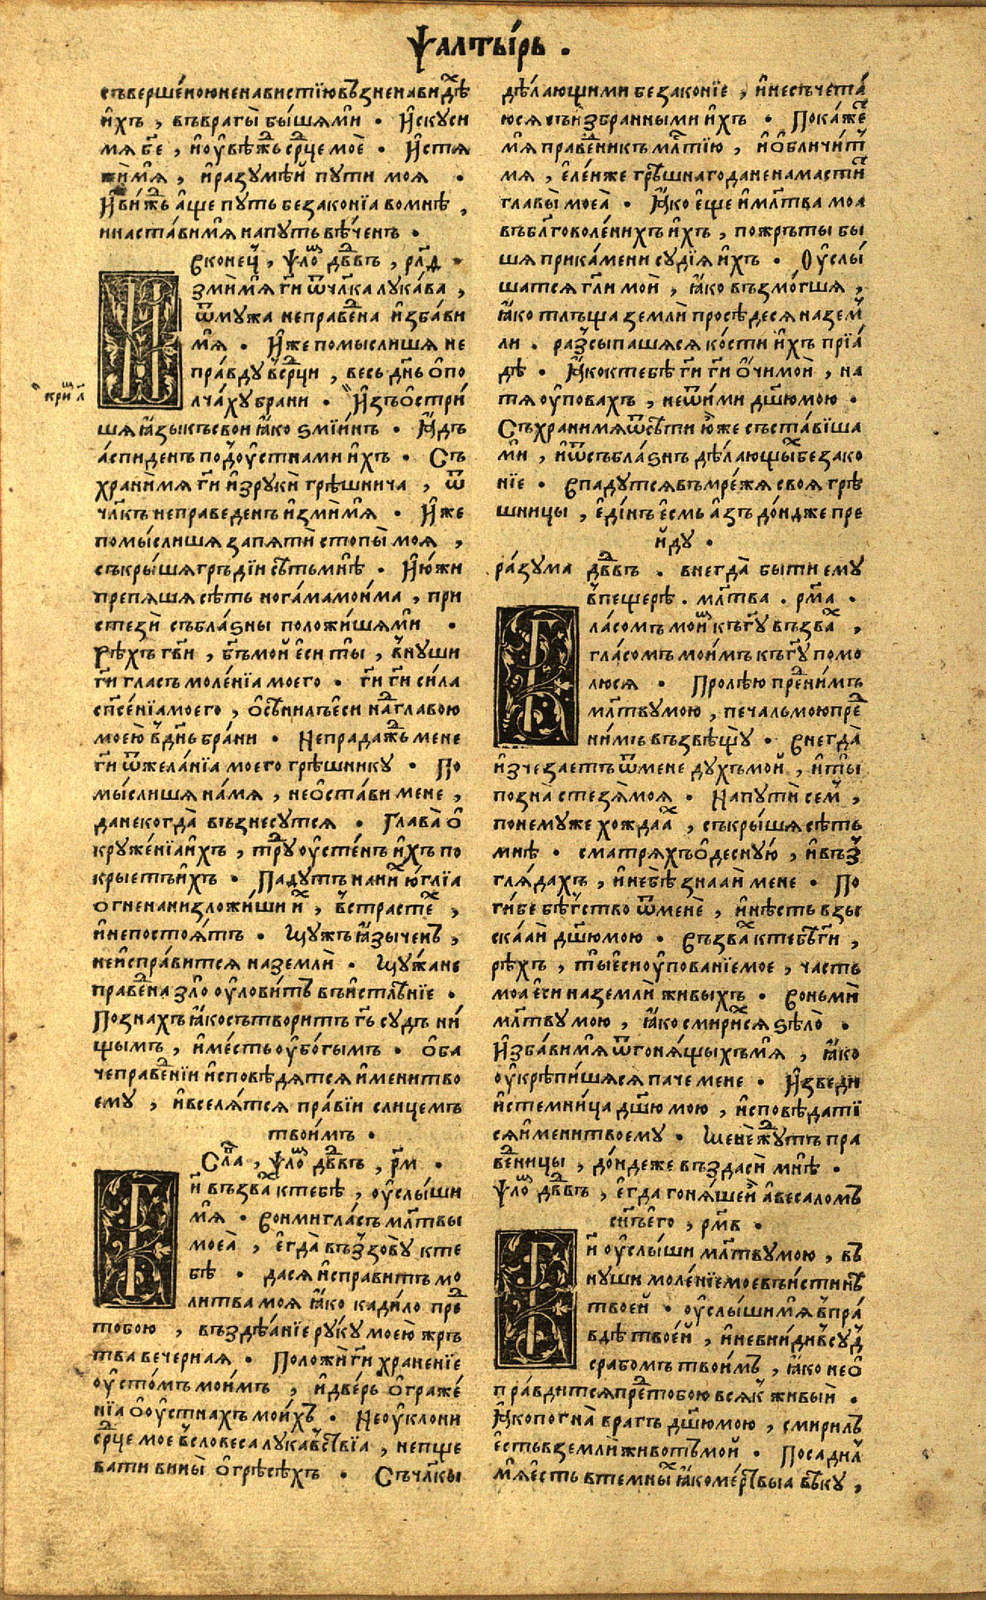 Ѱалты́рь .
съверше́ною ненавистїю възненави́дѣ
и́хъ , въврагы̀ бы́шѧми • И҆скуси
мѧ бе҃ , и҆ оу҆вѣ́жь ср҃це моѐ • И҆стѧ
жи́мѧ , и҆разумѣ́й пути моѧ •
И҆ви́жь а҆ще путь безако́нїа вомнѣ ,
инаста́вимѧ напу́ть вѣ́ченъ •
Вконе́ць , ѱ҃ло дв҃двъ , рл҃д •
Изми́мѧ гд҃и ѿчл҃ка лука́ва ,
ѿму́жа непра́ведена и҆зба́ви
мѧ • И҆же помыслишѧ не
пра́вду в̾ср҃ци , весь дн҃ь о҆по
лча́ху брани • И҆зъо҆стри́
шѧ ꙗ҆зы́къ свои ꙗ҆ко ѕмі́инъ • Ꙗ҆дъ
а́спиденъ подоу҆стнами и҆хъ • Съ
храни́мѧ гд҃и и҆зрукѝ грѣ́шнича , ѿ
чл҃къ непра́веденъ и҆зми́мѧ • И҆же
помы́слишѧ запѧ́ти стопы̀ моѧ̀ ,
съкры́шѧ гръ́дїи сѣ́ть мнѣ̀ • И҆ ю҆жи
препѧ́шѧ сѣ́ть нога́ма мои́ма , при
стези́ събла́ѕны положи́шѧми •
Рѣ́хъ гв҃и , бг҃ъ мой є҆си ты̀ , в̾нуши
гд҃и гла́съ моле́нїа моего • гд҃и гд҃и си́ла
сп҃се́нїа моего , о҆сѣнилъ є҆си на̀главою
моею̀ в̾де́нь бра́ни • Непрада́жь мене
гд҃и ѿжела́нїа моего грѣ́шнику • По
мы́слишѧ на́мѧ , нео҆ста́ви мене ,
данекогда̀ възнесу́тсѧ • Глава̀ о҆
круже́нїа и҆хъ , тру́д оу҆сте́нъ и҆хъ по
кры́етъ и҆хъ • Паду́тъ нани́х ю҆́глїа
огнена низложи́ши и҆х , в̾стра́стех ,
и҆непостоѧ́тъ • Мужъ ꙗ҆зы́ченъ ,
неи҆спра́витсѧ наземлѝ • Мужа не
пра́вена зло̀ оу҆лови́тъ въи҆стлѣ́нїе •
Позна́хъ ꙗ҆ко сътвори́тъ гь҃ су́дъ ни́
щымъ , и҆ме́сть оу҆бо́гымъ • О҆ба
че пра́веднїи и҆сповѣ́дѧтсѧ и҆мени тво
ему̀ , и҆вселѧ́тсѧ пра́вїи слицемъ
твои́мъ •
Сл҃а , ѱ҃ло дв҃двъ , рм҃ •
Гд҃и възва́хъ ктебѣ̀ , оу҆слы́ши
мѧ • Вонми гла́съ мл҃твы
моеѧ̀ , є҆гда̀ възову̀ кте
бѣ • да сѧ и҆спра́витъ мо
литва моѧ ꙗ҆ко кади́ло пред
тобою , въздѣѧ́нїе руку̀ моею̀ жрътва
тва вече́рнаѧ • Положѝ гд҃и хранение
оу҆сто́мъ мои́мъ , и҆две́рь о҆граже́
нїа о҆оу҆стнахъ мои́хъ • Неоу҆клони
ср҃це мое в̾словеса лука́вствїа , непще
вати вины̀ о҆грѣсѣ́хъ • Съ чл҃кы
дѣ́лающими безако́нїе , и҆несъчета́
юсѧ съи҆збранными и҆хъ • Пока́жет
мѧ пра́веникъ мл҃тїю , и҆ о҆бличи́т
мѧ , є҆ле́й же грѣ́шнаго данена́масти́т
главы̀ моеа̀ • Ꙗ҆ко є҆ще и҆мл҃тва моа
въбл҃говоле́нихъ и҆хъ , пожръ́ты бы
шѧ прика́мени судїѧ̀ и҆хъ • Оу҆слы́
шатсѧ гл҃и мои̾ , ꙗ҆ко възмо́гшѧ ,
ꙗ҆ко тлъ́ща землѝ просѣ́десѧ назем
ли • разсы́пашѧсѧ ко́сти и҆хъ прїа́
дѣ • Ꙗ҆ко ктебѣ̀ гд҃и гд҃и о҆чи мои , на
тѧ оу҆пова́хъ , неѿи́ми дш҃ю мою •
Съхрани́мѧ ѿсѣ́ти ю҆́же съста́вїша
мѝ , и҆ѿсъбла́ѕнъ дѣ́лающыхбезако
нїе • Впадутсѧ въмре́жѧ своѧ грѣ
шницы , є҆ди́нъ є҆смь а҆зъ до́ндже пре
йду •
Ра́зума дв҃двъ • внегда̀ быти ему
в̾пеще́рѣ . мл҃тва . рм҃а •
Гла́сомъ мои́м къгд҃у възва́х ,
гла́сомъ мои́мъ къгд҃у помо
люсѧ • Пролѣю пред ни́мъ
мл҃твумою , печа́ль мою пред
ни́мъ възвѣщу̀ • Внегда̀
и҆зчеза́етъ ѿмене ду́хъ мо́й , и҆ты̀
позна̀ стезѧ̀моѧ • Напутѝ се́м ,
понемуже хожда́ах , съкры́шѧ сѣ́ть
мнѣ • сматрѧ́хъ о҆десну́ю , и҆въз
глѧ́дахъ , и҆небѣ̀ знаа́й мене • По
ги́бе бѣ́гство ѿменѐ , и҆нѣ́сть взы
ска́ай дш҃ю мою • Възва́х ктебѣ̀ гд҃и ,
рѣ́хъ , ты̀ є҆си оу҆пова́нїе мое , часть
моа є҆си наземлѝ живы́хъ • Вонмѝ
мл҃тву мою , ꙗ҆ко смири́хсѧ ѕѣлѡ̀ •
И҆зба́ви мѧ ѿгонѧ́щыхъ мѧ , ꙗ҆ко
оу҆крѣпи́шѧсѧ паче мене • И҆зведи
и҆стемни́ца дш҃ю мою , и҆сповѣ́датї
сѧ и҆мени твоему • Мене́ ждутъ пра
веницы , до́ндеже възда́си мнѣ •
Ѱ҃ло дв҃двъ , є҆гда гонѧ́шей а҆весало́мъ
сн҃ъ є҆го , рм҃в •
Гд҃и оу҆слы́ши мл҃тву мою , въ
нуши моле́нїемое въи҆стинѣ
твое́й • оу҆слы́ши мѧ в̾пра́
вдѣ твое́й , и҆невни́ди в̾суд
срабо́мъ твои́мъ , ꙗ҆ко нео҆
пра́вдитсѧ предтобою всѧк живы́й •
Ꙗ҆ко погна̀ врагъ дш҃ю мою , смири́лъ
є҆сть вземлѝ живо́тъ мой • Посади́л
мѧ є҆сть втемны́х ꙗ҆ко ме́ртвыа вѣку ,